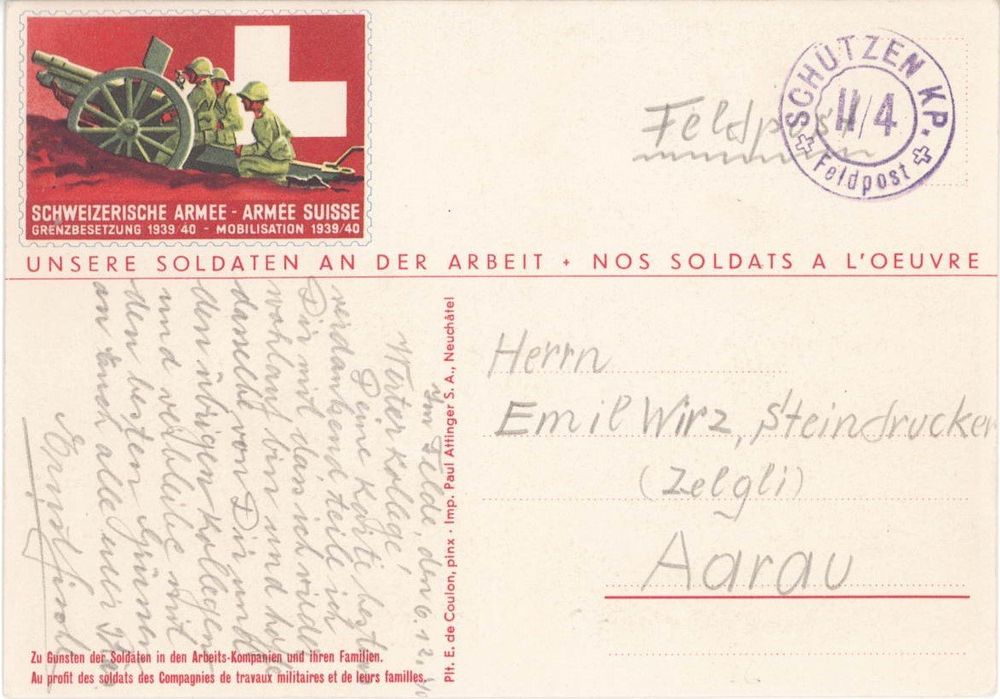 SCHWEIZERISCHE ARMEE - ARMÉE SUISSE
GRENZBESETZUNG 1939/40 - MOBILISATION 1939/40
Feldpost
SCHÜTZEN KP.
II/4
Feldpost
UNSERE SOLDATEN AN DER ARBEIT + NOS SOLDATS A L'OEUVRE
Im Felde, den 6.12.
Werter Kollege!
Deine Karte bestens
verdankend teile ich
Dir mit dass ich wieder
wohlauf bin und hoffe
dasselbe von Dir und
den übrigen Kollegen
und verbleibe mit
den besten Grüssen
an Euch alle Euer
Plt. E. de Coulon, pinx · Imp. Paul Attinger S. A., Neuchâtel
Herrn
Emil Wirz, Steindrucker
(Zelgli)
Aarau
Zu Gunsten der Soldaten in den Arbeits-Kompanien und ihren Familien.
Au profit des soldats des Compagnies de travaux militaires et de leurs familles.